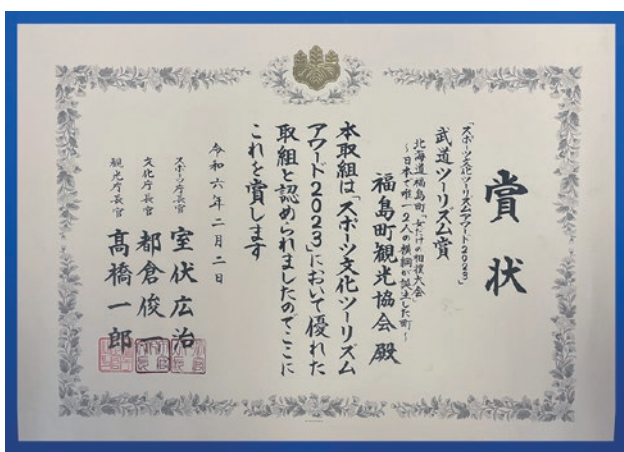 賞状
「スポーツ文化ツーリズムアワード2023」
武道ツーリズム賞
北海道福島町「女だけの相撲大会」
～日本で唯一2人の横綱が誕生した町～
福島町観光協会殿
本取組は「スポーツ文化ツーリズム
アワード2023」において優れた
取組と認められましたのでここに
これを賞します
令和六年二月二日
スポーツ庁長官 室伏広治
文化庁長官 都倉俊一
観光庁長官 髙橋一郎